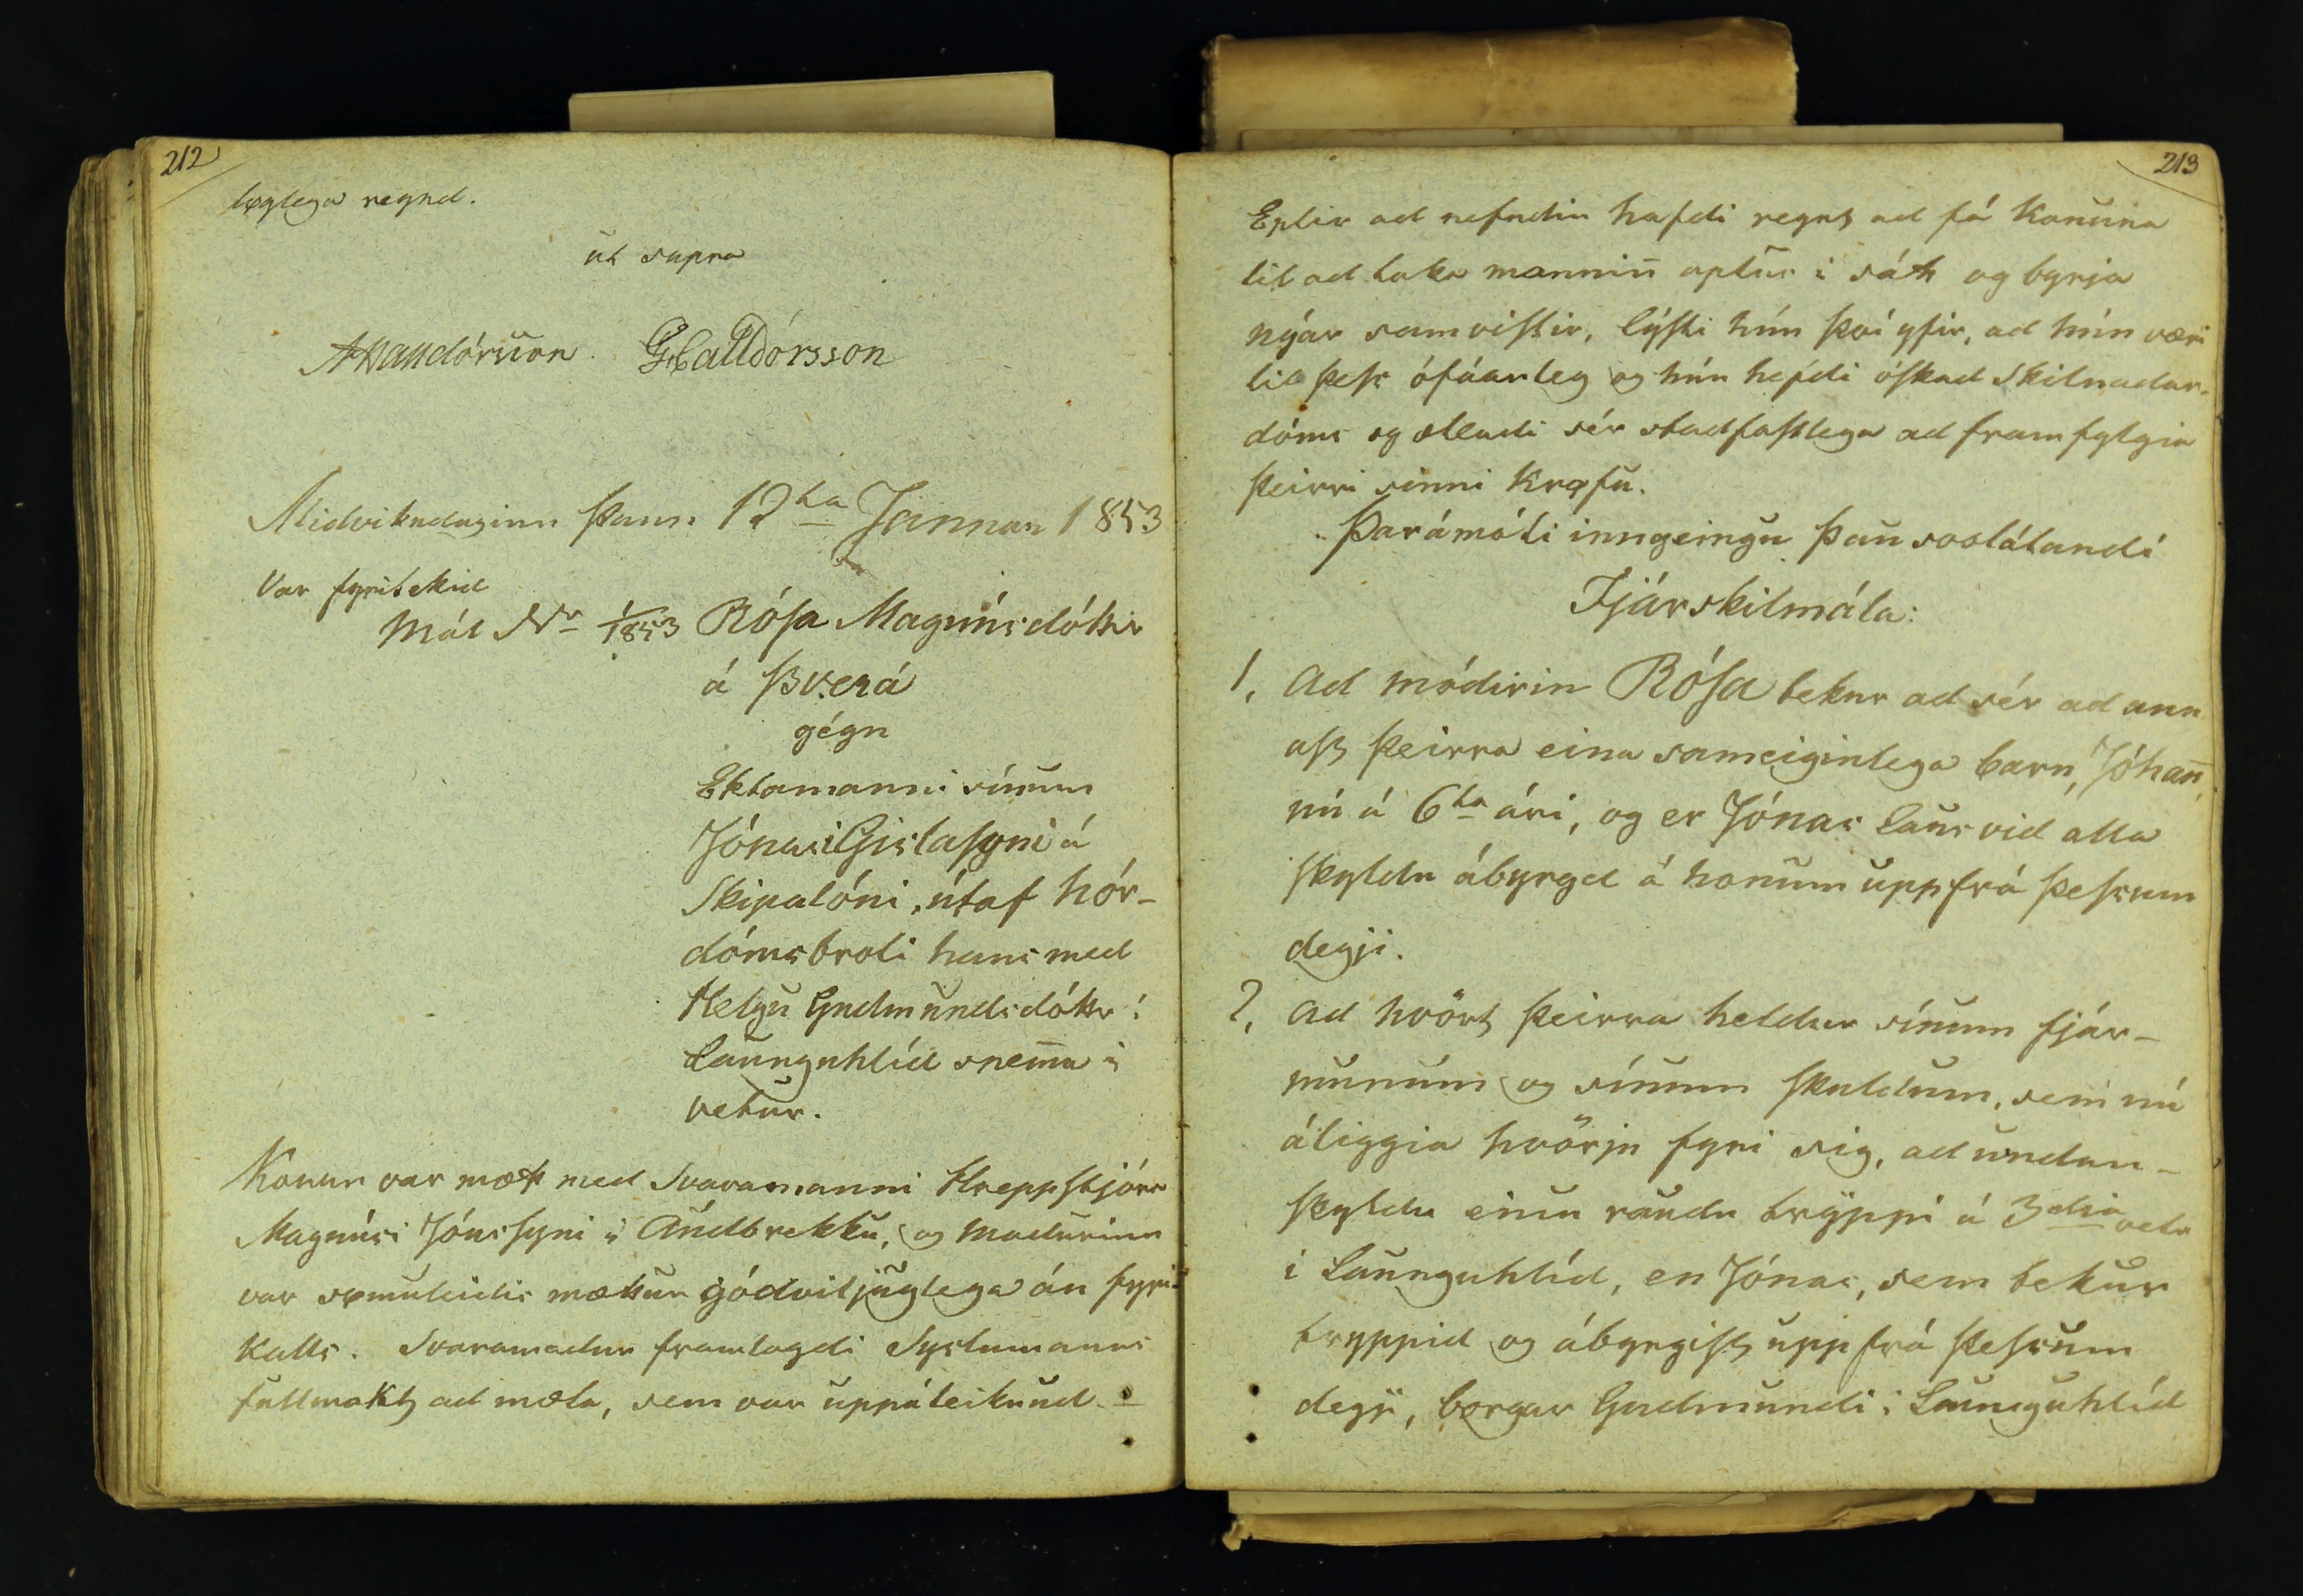 212
løglega reynd.
ut supra
AHalldórsson. GHalldórsson
Midvikudaginn þann 12ta Januar 1853
Var fyritekid
Mál Nr 1/1853 Rósa Magnúsdóttir
á Þverá
gégn
Ektamanni sínum
Jónasi Gislasyni á
Skipalóni, útaf hór-
dómsbroti hans med
Helgu Gudmundsdóttr í
Launguhlíd snem̄a í
vetur.
Konan var mætt med Svaramanni Hreppstjóra
Magnúsi Jónssyni í Audbrekku, og Madurinn
var sømuleidis mættur gódviljuglega án fyri-
kalls. Svaramadur framlagdi Syslumanns
fullmakt ad mæta, sem var uppáteiknud.
213
Eptir ad nefndin hafdi reynt ad fá Konuna
til ad taka mannin̄ aptur i sátt og byrja
nýar samvistir, lýsti hún því yfir, ad hún væri
til þess ófáanleg og hún hefdi óskad Skilnadar-
dóms og ætladi sér stadfastlega ad framfylgia
þeirri sinni Krøfu.
Þarámóti inngeingu þau svolátandi
Fjárskilmála:
1, Ad módirin Rósa tekur ad sér ad ann
ast þeirra eina sameiginlega barn, Jóhan̄,
nú á 6ta ári, og er Jónas laus vid alla
skyldu ábyrgd á honum uppfrá þessum
degji.
2, Ad hvört þeirra heldur sínum fjár-
munum og sínum skuldum, sem nú
áliggia hvörju fyri sig, ad undan-
skyldu einu raudu tryppi á 3dia vetr
i Launguhlíd, en Jónas, sem tekur
tryppid og ábyrgist uppfrá þessum
degji, borgar Gudmundi i Launguhlíd